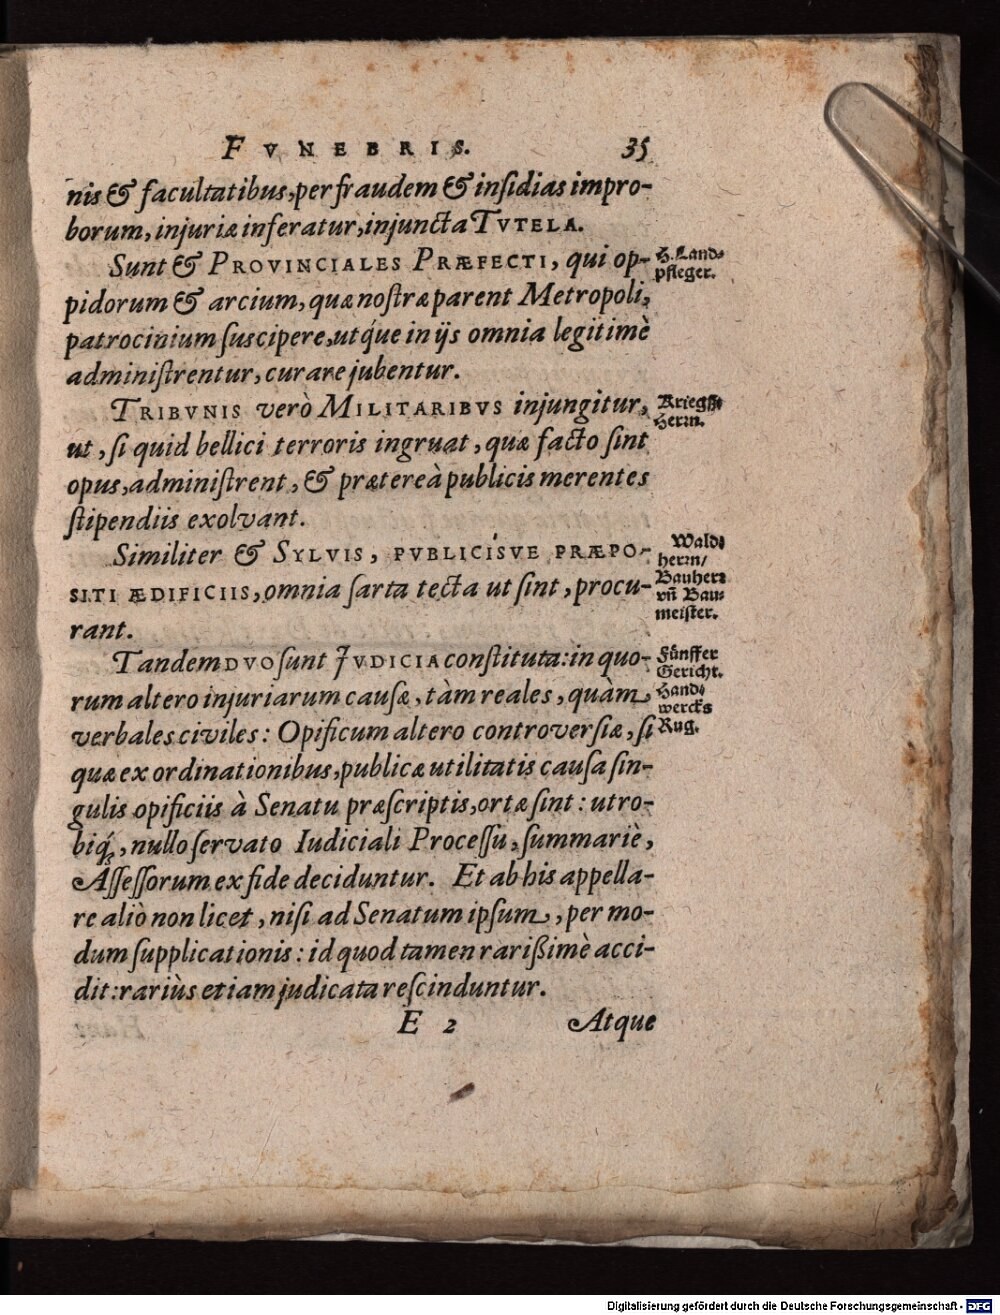 FVNEBRIS. 35
nis & facultatibus, per fraudem & insidias impro-
borum, injuriæ inferatur, injuncta TVTELA.
Sunt & PROVINCIALES PRÆFECTI, qui op-
pidorum & arcium, quæ nostræ parent Metropoli,
patrocinium suscipere, utq́ue in ijs omnia legitimè
administrentur, curare jubentur.
H. Land-
pfleger.
TRIBVNIS verò MILITARIBVS injungitur,
ut, si quid bellici terroris ingruat, quæ facto sint
opus, administrent, & prætereà publicis merentes
stipendiis exolvant.
Kriegß-
Herrn.
Similiter & SYLVIS, PVBLICÍSVE PRÆPO-
SITI ÆDIFICIIS, omnia sarta tecta ut sint, procu-
rant.
Wald-
herrn/
Bauherr
vñ Bau-
meister.
Tandem DVO sunt JVDICIA constituta: in quo-
rum altero injuriarum causæ, tàm reales, quàm
verbales civiles: Opificum altero controversiæ, si
quæ ex ordinationibus, publicæ utilitatis causa sin-
gulis opificiis à Senatu præscriptis, ortæ sint: utro-
biq́, nullo servato Iudiciali Processu, summariè,
Assessorum ex fide deciduntur. Et ab his appella-
re aliò non licet, nisi ad Senatum ipsum, per mo-
dum supplicationis: id quod tamen rarißimè acci-
dit: rariùs etiam judicata rescinduntur.
Fünffer
Gericht.
Hand-
wercks
Rug.
E 2 Atque
Digitalisierung gefördert durch die Deutsche Forschungsgemeinschaft - DFG